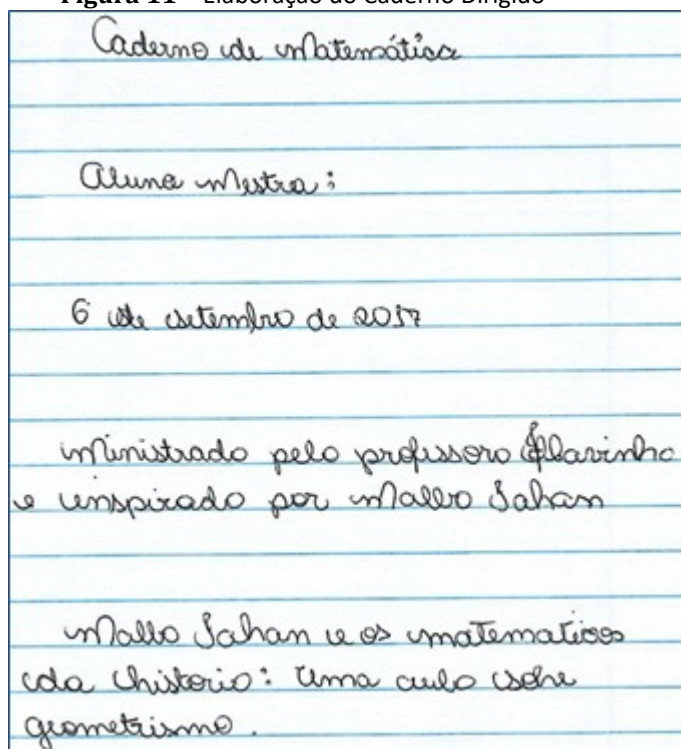 Figura 11 – Elaboração do Caderno Dirigido
Caderno de Matemática
Aluna Mestra:
6 de setembro de 2017
ministrado pelo professoro Fllavinho
e inspirado por Malbo Jahan
Malbo Jahan e os matematicos
da historio: Uma aula sobre
geometrismo.